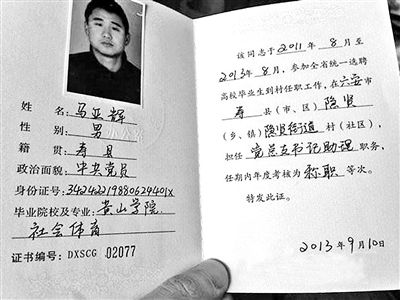 姓名：马亚辉
性别：男
籍贯：寿县
政治面貌：中共党员
身份证号：34242219880624401X
毕业院校及专业：黄山学院
社会体育
证书编号：DXSCG 02077
该同志于2011年8月至
2013年8月，参加全省统一选聘
高校毕业生到村任职工作，在六安市
寿县(市、区)隐贤
(乡、镇)隐贤街道村(社区)，
担任党总支书记助理职务，
任期内年度考核为称职等次。
特发此证。
2013年9月10日